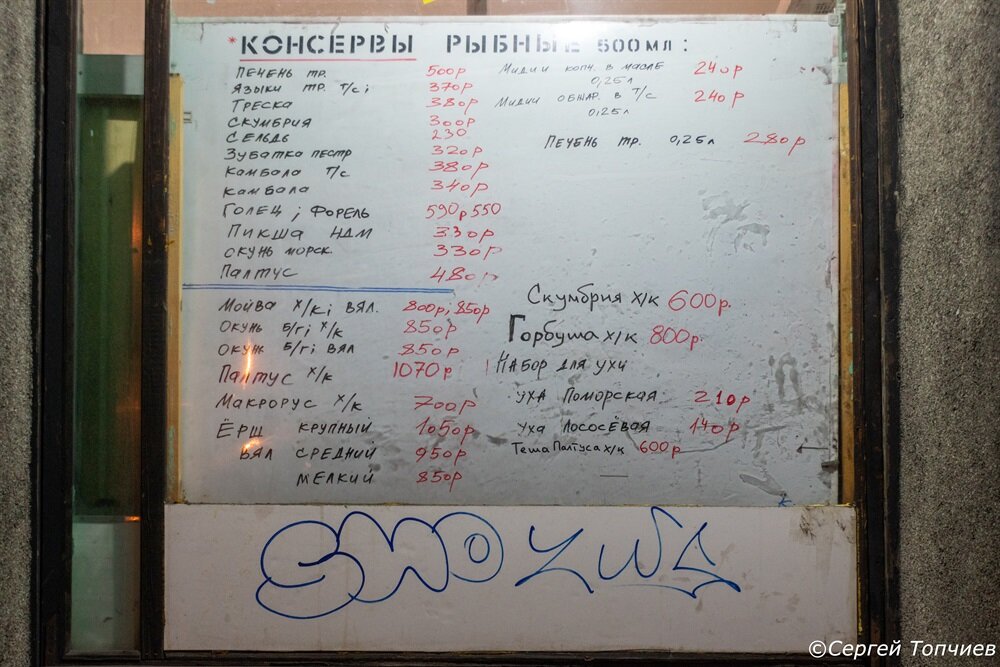 *КОНСЕРВЫ РЫБНЫЕ 500 МЛ:
ПЕЧЕНЬ ТР. 500р
ЯЗЫКИ ТР. Т/С; 370р
ТРЕСКА 380р
СКУМБРИЯ 300р
СЕЛЬДЬ 230
ЗУБАТКА ПЕСТР 320р
КАМБАЛА Т/С 380р
КАМБАЛА 340р
ГОЛЕЦ; ФОРЕЛЬ 590р 550
ПИКША НДМ 330р
ОКУНЬ МОРСК. 330р
ПАЛТУС 480р
МИДИИ КОПЧ. В МАСЛЕ 240р
0,25л
МИДИИ ОБЖАР. В Т/С 240р
0,25л
ПЕЧЕНЬ ТР. 0,25л 280р
МОЙВА Х/К; ВЯЛ. 800р; 850р
ОКУНЬ Б/Г; Х/К 850р
ОКУНЬ Б/Г; ВЯЛ 850р
ПАЛТУС Х/К 1070р
МАКРОРУС Х/К 700р
ЁРШ КРУПНЫЙ 1050р
ВЯЛ СРЕДНИЙ 950р
МЕЛКИЙ 850р
Скумбрия Х/К 600р.
Горбуша Х/К 800р.
НАБОР ДЛЯ УХИ
УХА ПОМОРСКАЯ 210р
УХА ЛОСОСЁВАЯ 140р
Теша Палтуса Х/К 600р
©Сергей Топчиев